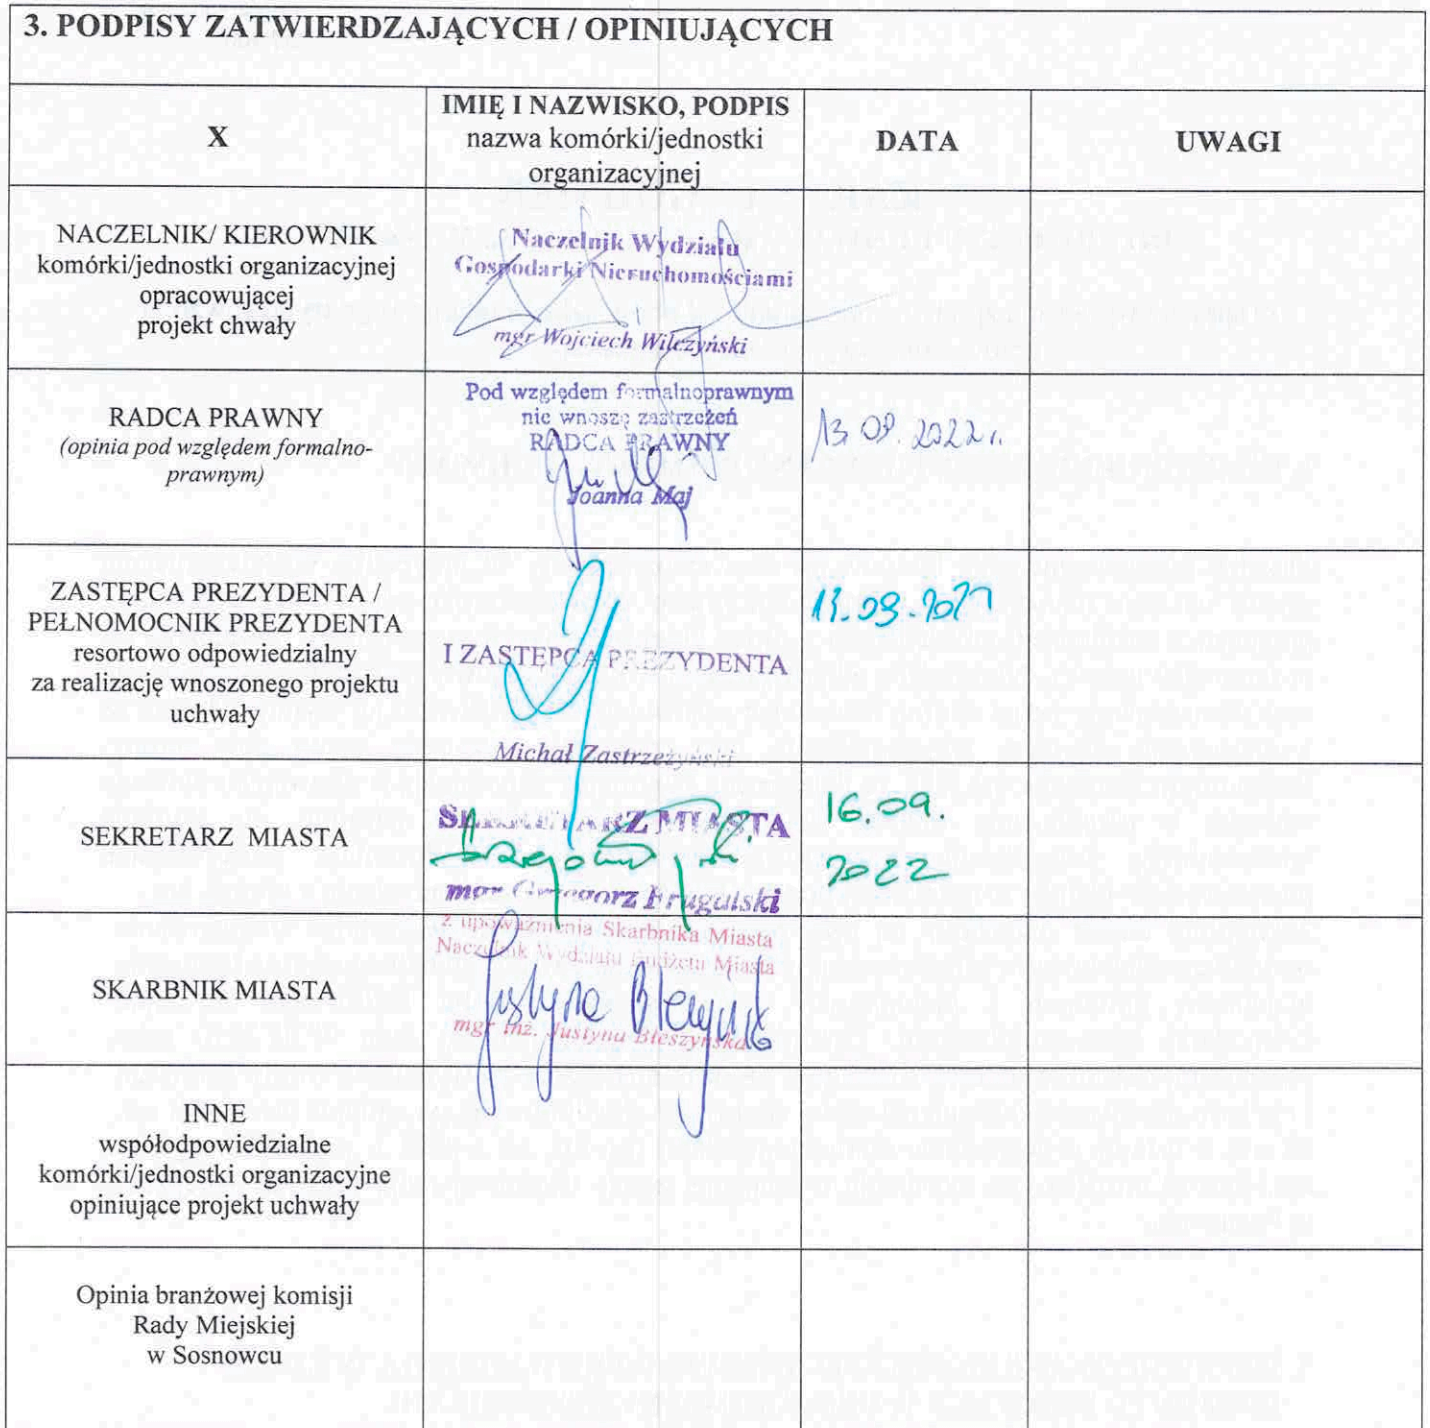 3. PODPISY ZATWIERDZAJĄCYCH / OPINIUJĄCYCH
X
IMIĘ I NAZWISKO, PODPIS
nazwa komórki/jednostki
organizacyjnej
DATA
UWAGI
NACZELNIK/ KIEROWNIK
komórki/jednostki organizacyjnej
opracowującej
projekt chwały
Naczelnik Wydziału
Gospodarki Nieruchomościami
mgr Wojciech Wilczyński
RADCA PRAWNY
(opinia pod względem formalno-
prawnym)
Pod względem formalnoprawnym
nie wnoszę zastrzeżeń
RADCA PRAWNY
Joanna Maj
13.09.2022 r.
ZASTĘPCA PREZYDENTA /
PEŁNOMOCNIK PREZYDENTA
resortowo odpowiedzialny
za realizację wnoszonego projektu
uchwały
I ZASTĘPCA PREZYDENTA
Michał Zastrzeżyński
SEKRETARZ MIASTA
SEKRETARZ MIASTA
mgr Grzegorz
16.09.
2022
SKARBNIK MIASTA
z upoważnienia Skarbnika Miasta
Naczelnik Wydziału Budżetu Miasta
mgr inż. Justyna Błeszyńska
INNE
współodpowiedzialne
komórki/jednostki organizacyjne
opiniujące projekt uchwały
Opinia branżowej komisji
Rady Miejskiej
w Sosnowcu